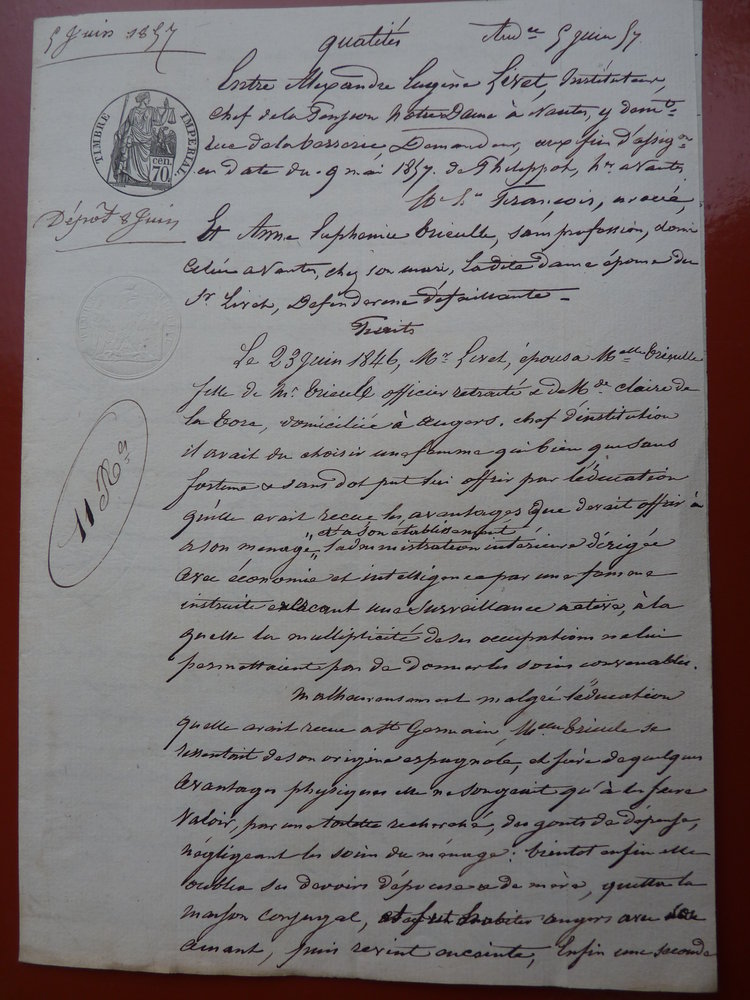 5 Juin 1857
qualités
Aud ce 5 juin 57
TIMBRE IMPERIAL
70 cen.
Dépôt 8 Juin
11 R
Entre Alexandre Eugène Livet, Instituteur,
chef de la Pension Notre Dame à Nantes, y dom té
rue de la Demandeur, aux fin d'assig on
en date du 9 mai 1857 de Philippot, hr. a Nantes
François, avoué,
Et Anne Euphémie Trieulle, sans profession, domi
ciliée a Nantes, chez son mari, la dite dame épouse du
Sr Livet, Défenderesse défaillante –
Faits
Le 23 juin 1846, Mr. Livet, épousa Melle Trieulle
fille de Mr. Trieulle officier retraité & de Mde. Claire de
la , domiciliée à Angers. chef d'institution
il avait du choisir une femme qui bien que sans
fortune & sans dot put lui offrir par l'éducation
qu'elle avait reçue les avantages que devait offrir à
a son ménage, "et a son établissement" l'administration intérieure dirigée
avec économie et intelligence par une femme
instruite exerçant une surveillance active, à la
quelle la multiplicité de ses occupations ne lui
permettaient pas de donner les soins convenables.
Malheureusement malgré l'éducation
quelle avait reçue a St Germain, Melle Trieulle se
ressentait de son origine espagnole, et fière de quelques
avantages physiques elle ne songeait qu'à les faire
valoir, par une toilette recherché, des gouts de dépense,
négligeant les soins du ménage: bientot enfin elle
oublia ses devoirs d'épouse & de mère, quitta la
maison conjugal, et fut habiter angers avec son
amant, puis revint enceinte, Enfin une seconde